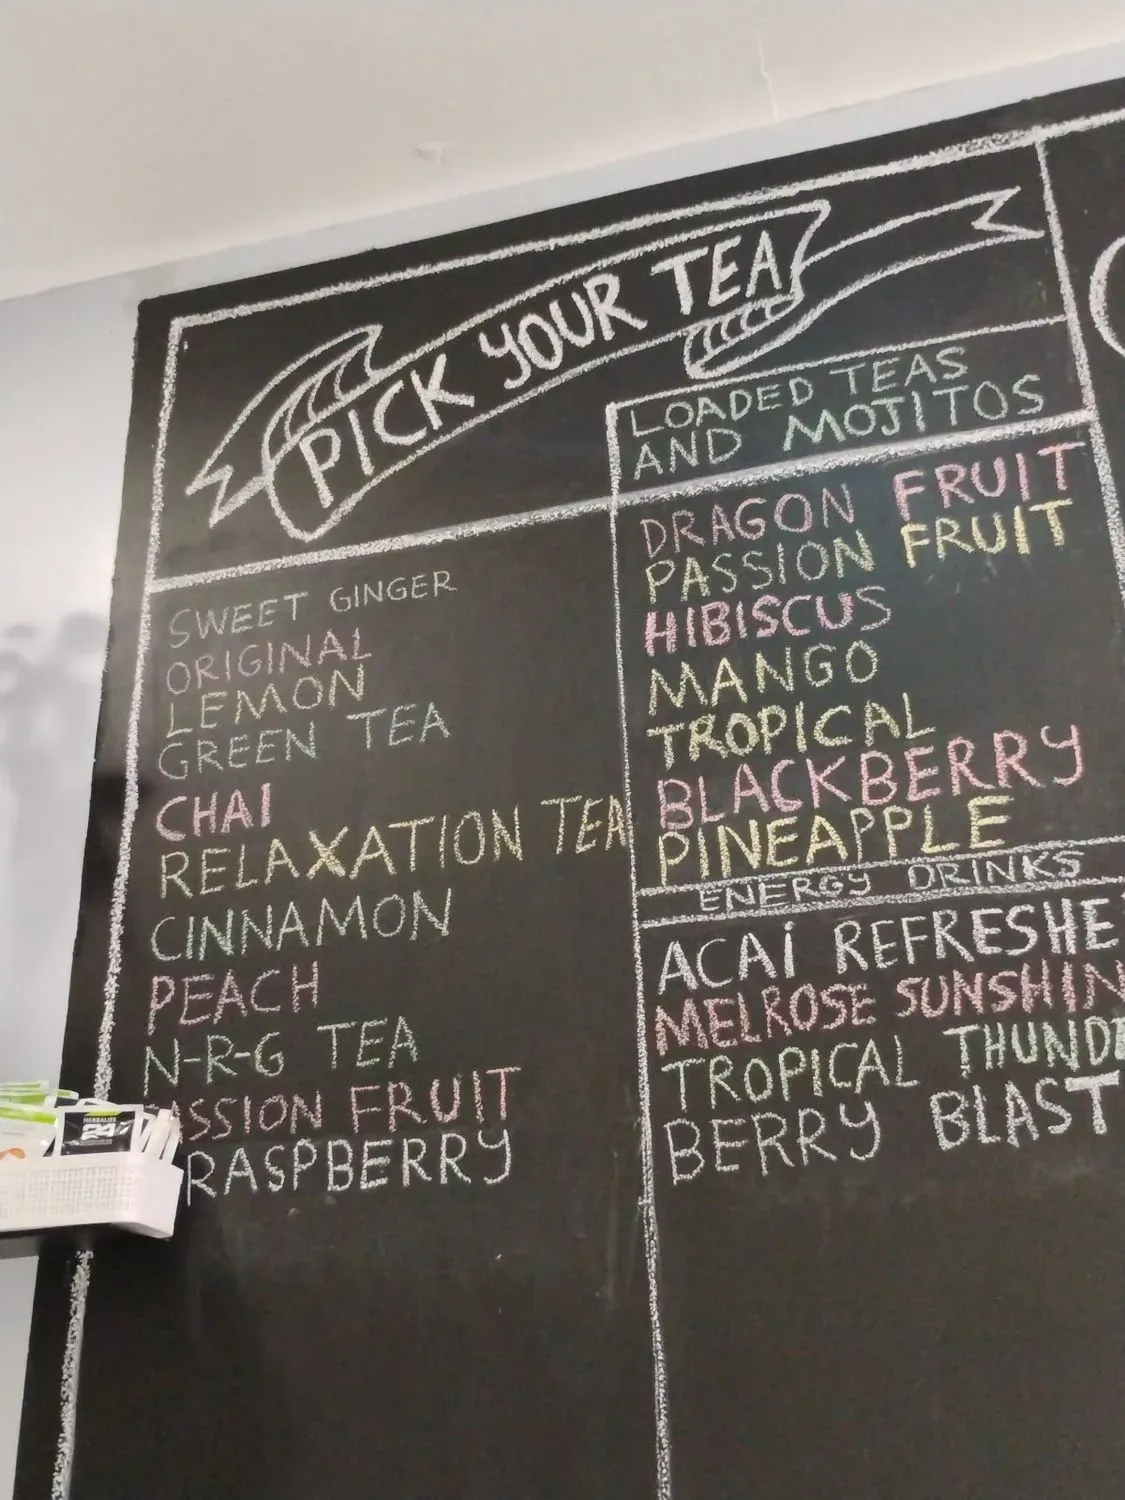 PICK YOUR TEA
SWEET GINGER
ORIGINAL
LEMON
GREEN TEA
CHAI
RELAXATION TEA
CINNAMON
PEACH
N-R-G TEA
ASSION FRUIT
RASPBERRY
LOADED TEAS
AND MOJITOS
DRAGON FRUIT
PASSION FRUIT
HIBISCUS
MANGO
TROPICAL
BLACKBERRY
PINEAPPLE
ENERGY DRINKS
ACAi REFRESHE
MELROSE SUNSHIN
TROPICAL THUNDE
BERRY BLAST
HERBALIFE
24